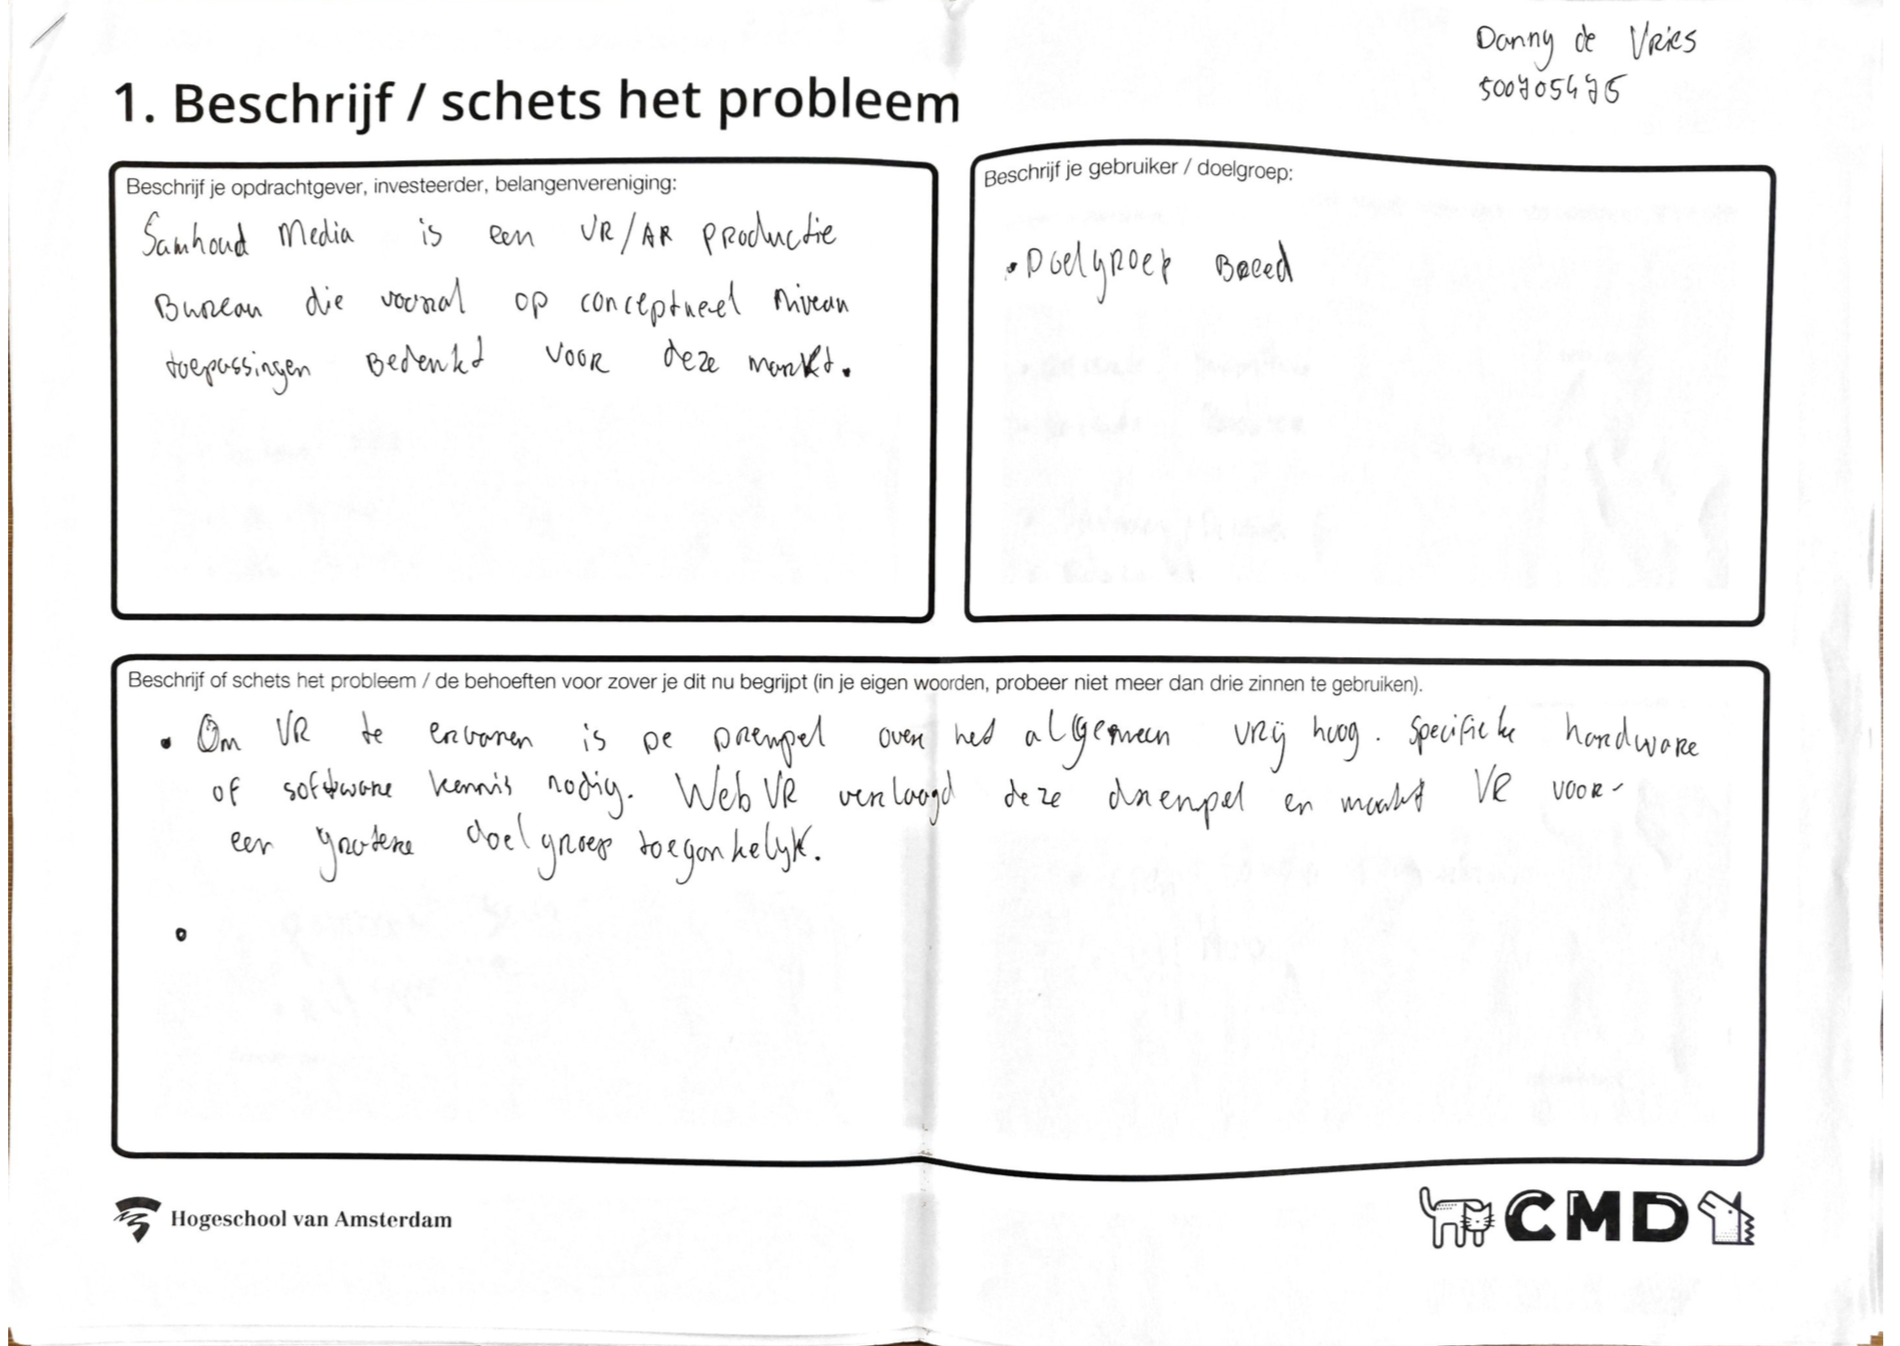 Danny de Vries
500705475
1. Beschrijf / schets het probleem
Beschrijf je opdrachtgever, investeerder, belangenvereniging:
Samhoud Media is een VR/AR Productie
Bureau die vooral op conceptueel niveau
toepassingen Bedenkt voor deze markt.
Beschrijf je gebruiker / doelgroep:
• Doelgroep Breed
Beschrijf of schets het probleem / de behoeften voor zover je dit nu begrijpt (in je eigen woorden, probeer niet meer dan drie zinnen te gebruiken).
• Om VR te ervaren is De Drempel over het algemeen vrij hoog. Specifieke hardware
of software kennis nodig. Web VR verlaagd deze drempel en maakt VR voor
een grotere doelgroep toegankelijk.
•
Hogeschool van Amsterdam
CMD